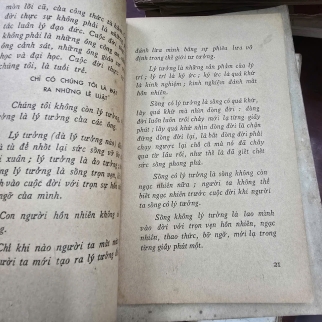 môn lôi cũ, của công thức
đời thực sự không phải là những
tác luân lý đạo đức. Cuộc đời
không phải là những ông công
ông cảnh sát, những ông
học và đại học. Cuộc đời
chúng tôi, là tuổi trẻ.
CHỈ CÓ CHÚNG TÔI LÀ ĐẶT
RA NHỮNG LỀ LUẬT
Chúng tôi không còn lý tưởng,
Lý tưởng (dù lý tưởng nào)
để nhốt lại sức sống vỡ
xuân; lý tưởng là áo
lý tưởng là sống trọn vẹn,
vào cuộc đời với trọn sự hồn
ngơ của mình.
Con người hồn nhiên không
tưởng.
Chỉ khi nào người ta mất
ta mới tạo ra lý tưởng
đánh lừa mình bằng sự phiêu lưu vô
định trong thế giới tư tưởng.
Lý tưởng là những sản phẩm của lý
trí; lý trí là ký ức; ký ức là quá khứ
là kinh nghiệm; kinh nghiệm đánh mất
hồn nhiên.
Sống có lý tưởng là sống có quá khứ,
lấy quá khứ mà nhìn dòng đời; dòng
đời luôn luôn trôi chảy mới lạ từng giây
phút; lấy quá khứ nhìn dòng đời là chặn
đứng dòng đời lại, là bắt dòng đời phải
chạy ngược lại chỗ cũ mà nó đã chảy
qua từ lâu rồi, như thế là đã giết chết
sức sống phong phú.
Sống có lý tưởng là sống không còn
ngạc nhiên nữa; người ta không thể
biết ngạc nhiên trước cuộc đời khi người
ta sống có lý tưởng.
Sống không lý tưởng là lao mình
vào đời với trọn vẹn hồn nhiên, ngạc
nhiên, thao thức, bỡ ngỡ, mới lạ trong
từng giây phút một.
21